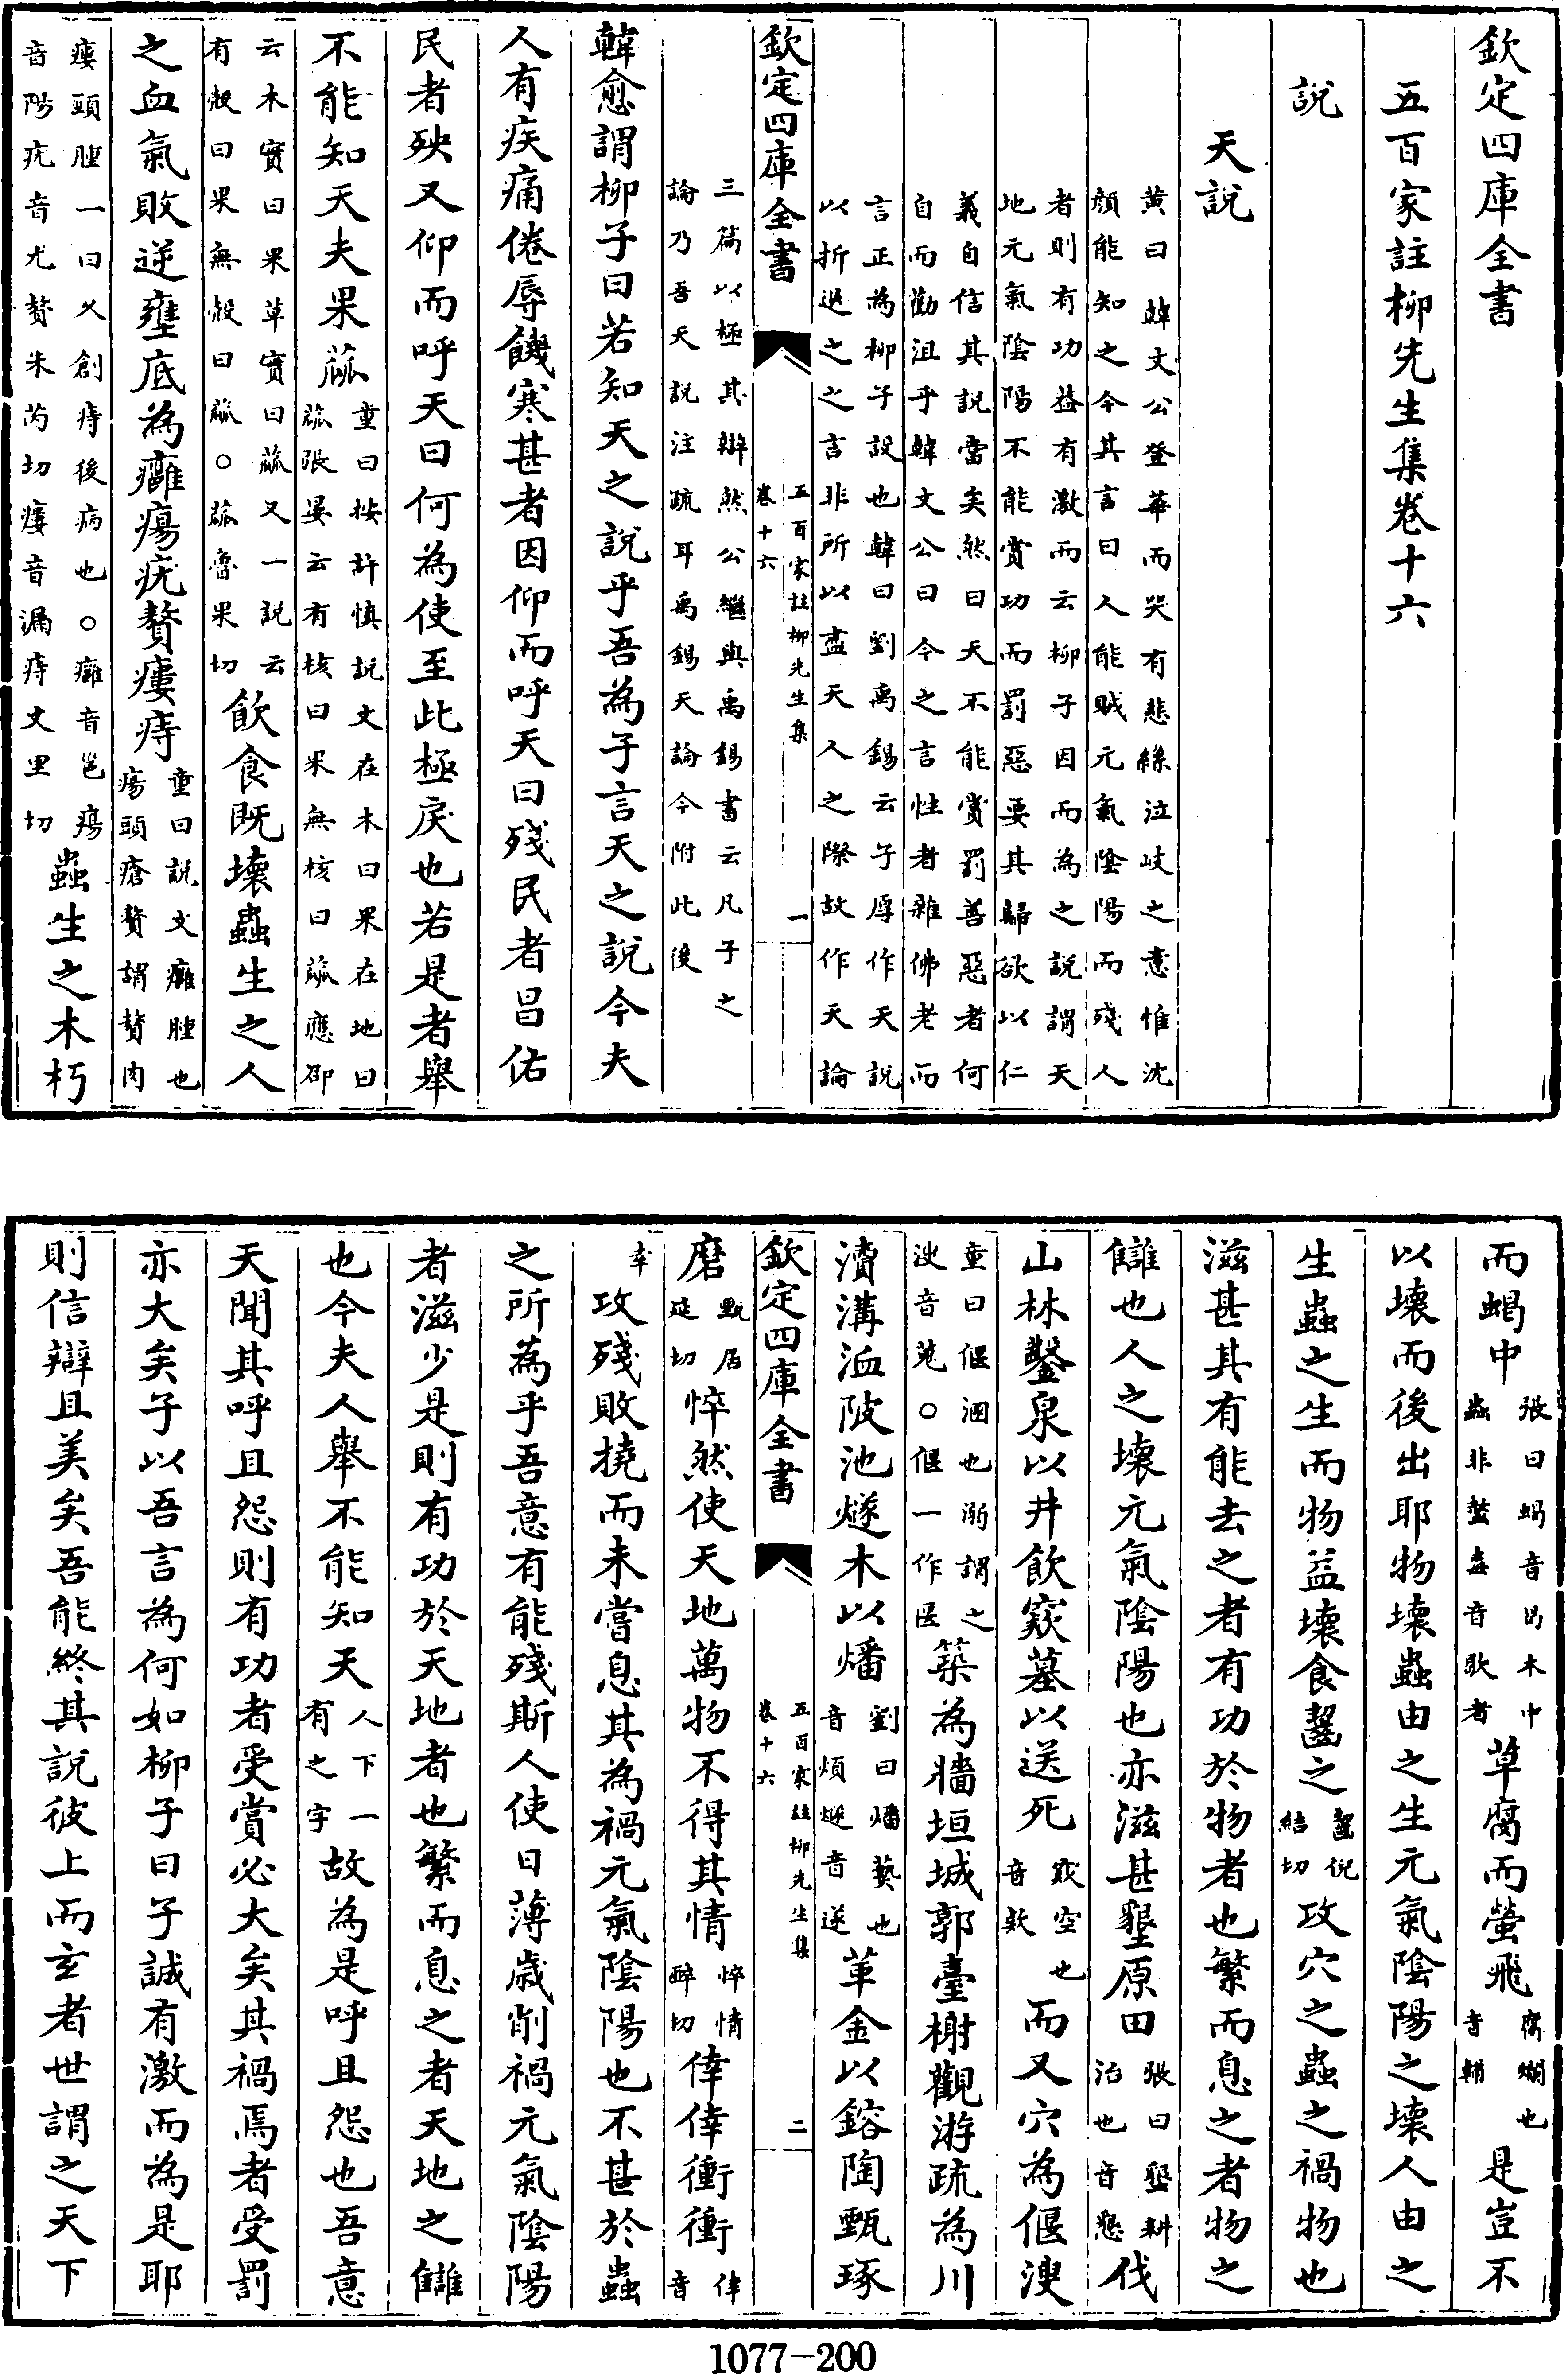 欽定四庫全書
五百家註柳先生集卷十六
說
天說
黄曰韓文公登華而哭有悲絲泣岐之意惟沈
顔能知之今其言曰人能賊元氣陰陽而殘人
者則有功葢有激而云柳子因而為之說謂天
地元氣陰陽不能賞功而罰惡要其歸欲以仁
義自信其說當矣然曰天不能賞罰善惡者何
自而勸沮乎韓文公曰今之言性者雜佛老而
言正為柳子設也韓曰劉禹錫云子厚作天說
以折退之之言非所以盡天人之際故作天論
欽定四庫全書
五百家註柳先生集
卷十六
一
三篇以極其辯然公繼與禹錫書云凡子之
論乃吾天說注疏耳禹錫天論今附此後
韓愈謂柳子曰若知天之說乎吾為子言天之說今夫
人有疾痛倦辱饑寒甚者因仰而呼天曰殘民者昌佑
民者殃又仰而呼天曰何為使至此極戾也若是者舉
不能知天夫果蓏童曰按許慎說文在木曰果在地曰
蓏張晏云有核曰果無核曰蓏應邵
云木實曰果草實曰蓏又一說云
有殻曰果無殻曰蓏○蓏魯果切飲食既壞蟲生之人
之血氣敗逆壅底為癰瘍疣贅瘻痔童曰說文癰腫也
瘍頭瘡贅謂贅肉
瘻頸腫一曰久創痔後病也○癰音邕瘍
音陽疣音尤贅朱芮切瘻音漏痔丈里切蟲生之木朽
而蝎中張曰蝎音曷木中
蟲非螫毒音歇者草腐而螢飛腐爛也
音輔是豈不
以壞而後出耶物壞蟲由之生元氣陰陽之壞人由之
生蟲之生而物益壞食齧之齧倪
結切攻穴之蟲之禍物也
滋甚其有能去之者有功於物者也繁而息之者物之
讎也人之壞元氣陰陽也亦滋甚墾原田張曰墾耕
治也音懇伐
山林鑿泉以井飲窾墓以送死窾空也
音欵而又穴為偃溲
童曰偃溷也溺謂之
溲音蒐○偃一作匽築為牆垣城郭臺榭觀游疏為川
瀆溝洫陂池燧木以燔劉曰燔爇也
音煩燧音遂革金以鎔陶甄琢
欽定四庫全書
五百家註柳先生集
卷十六
二
磨甄居
延切悴然使天地萬物不得其情悴情
醉切倖倖衝衝倖音
幸攻殘敗撓而未嘗息其為禍元氣陰陽也不甚於蟲
之所為乎吾意有能殘斯人使日薄歲削禍元氣陰陽
者滋少是則有功於天地者也繁而息之者天地之讎
也今夫人舉不能知天人下一
有之字故為是呼且怨也吾意
天聞其呼且怨則有功者受賞必大矣其禍焉者受罰
亦大矣子以吾言為何如柳子曰子誠有激而為是耶
則信辯且美矣吾能終其說彼上而玄者世謂之天下
1077-200